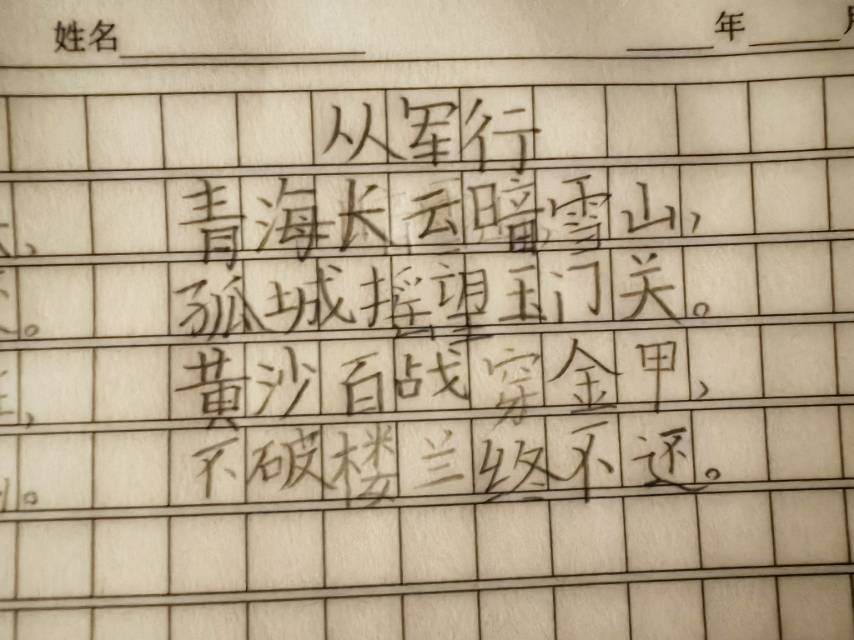 姓名 年
从军行
青海长云暗雪山，
孤城摇望玉门关。
黄沙百战穿金甲，
不破楼兰终不还。